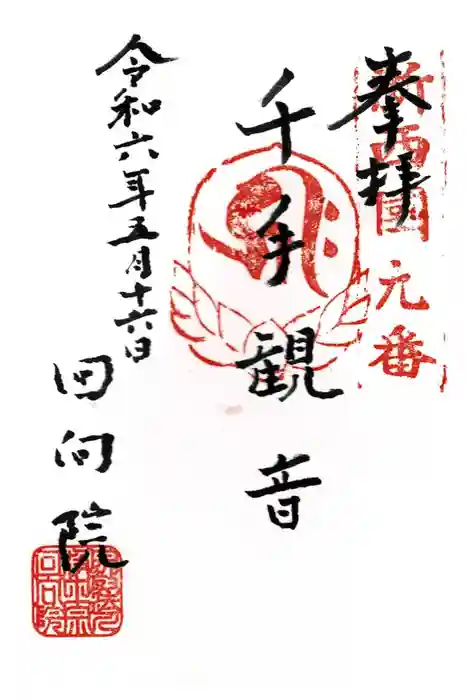 奉拝
新西國元番
千手観音
令和六年五月十六日
回向院